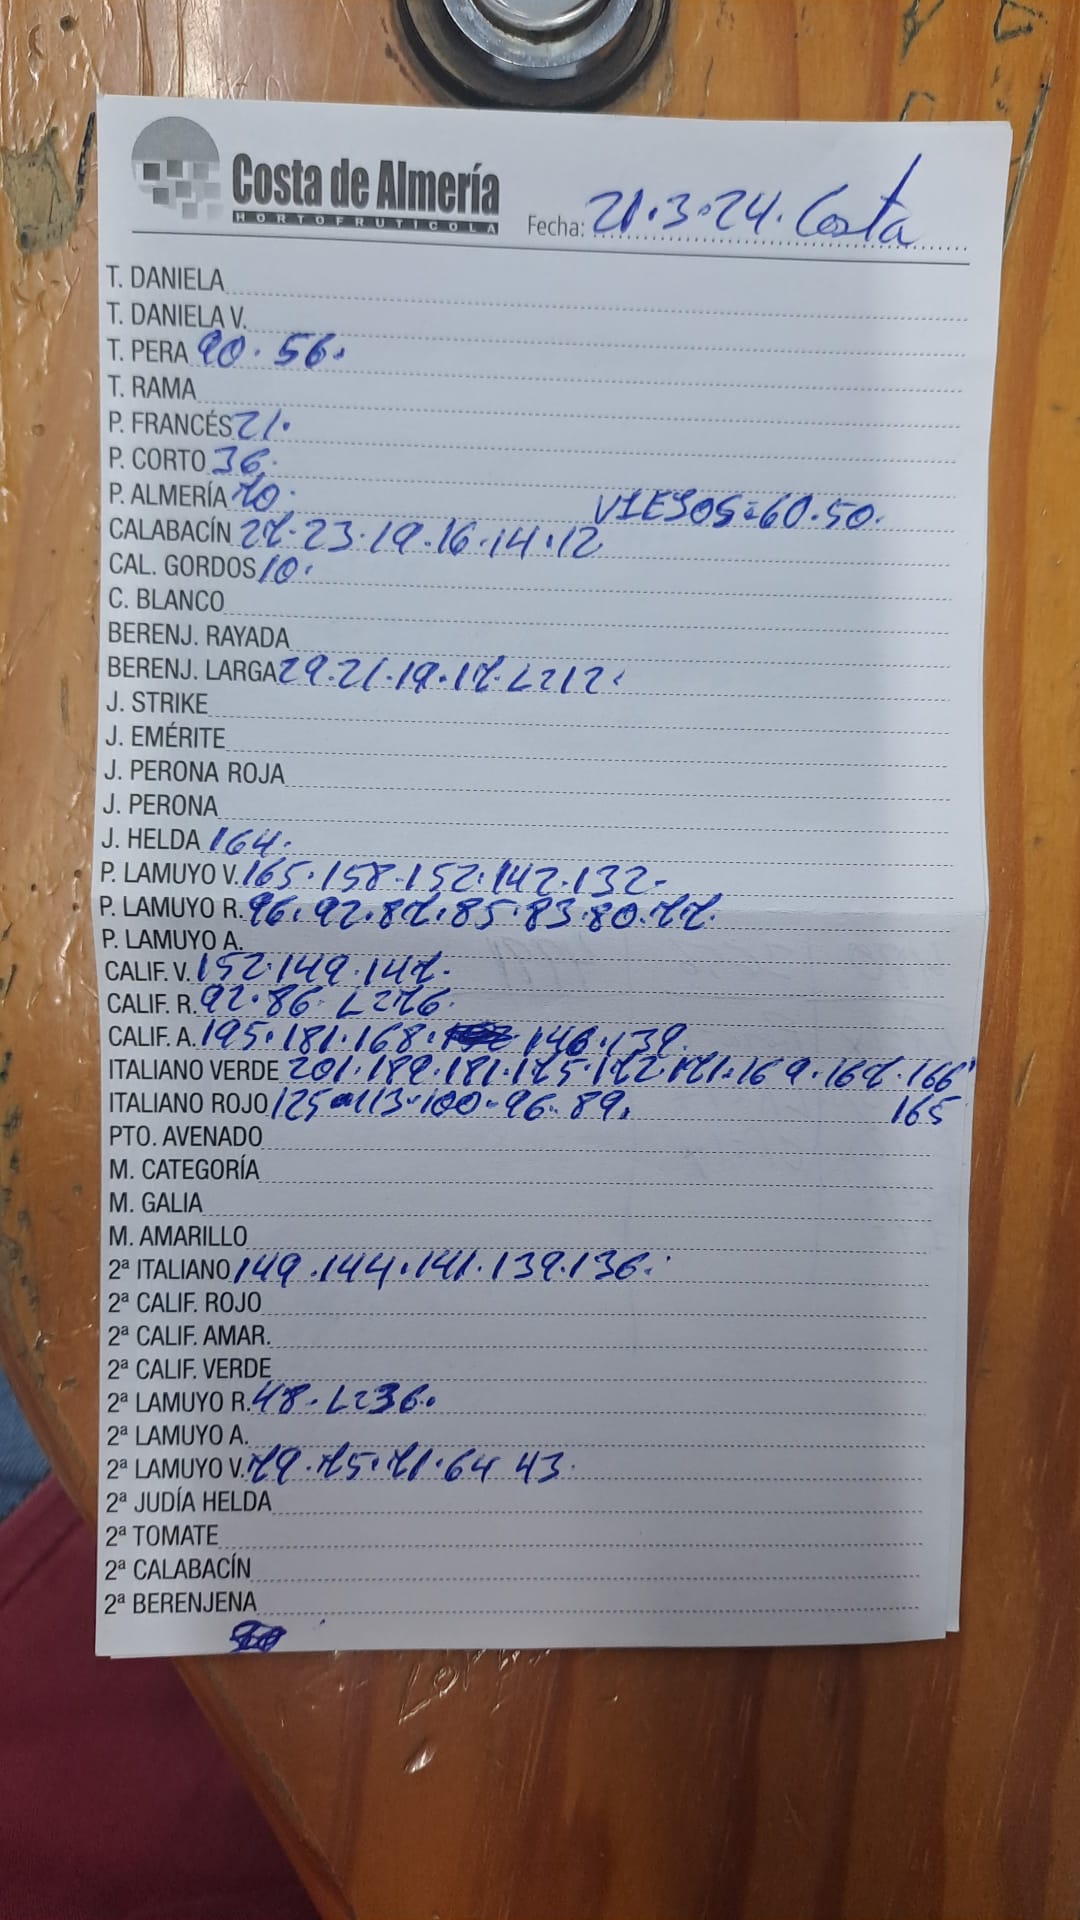 Costa de Almería
HORTOFRUTICOLA
Fecha: 21.3.24. Costa
T. DANIELA
T. DANIELA V.
T. PERA 90. 56.
T. RAMA
P. FRANCÉS 21.
P. CORTO 36.
P. ALMERÍA 70. VIEJOS=60.50.
CALABACÍN 27.23.19.16.14.12
CAL. GORDOS 10.
C. BLANCO
BERENJ. RAYADA
BERENJ. LARGA 29.21.19.17.L=12.
J. STRIKE
J. EMÉRITE
J. PERONA ROJA
J. PERONA
J. HELDA 164.
P. LAMUYO V. 165.158.152.142.132.
P. LAMUYO R. 96.92.87.85.83.80.77.
P. LAMUYO A.
CALIF. V. 152.149.147.
CALIF. R. 92.86 L=76.
CALIF. A. 195.181.168. 146.139.
ITALIANO VERDE 201.189.181.175.172.171.169.167.166
ITALIANO ROJO 125.113.100.96.89. 165
PTO. AVENADO
M. CATEGORÍA
M. GALIA
M. AMARILLO
2ª ITALIANO 149.144.141.139.136.
2ª CALIF. ROJO
2ª CALIF. AMAR.
2ª CALIF. VERDE
2ª LAMUYO R. 48. L=36.
2ª LAMUYO A.
2ª LAMUYO V. 79.75.71.64 43.
2ª JUDÍA HELDA
2ª TOMATE
2ª CALABACÍN
2ª BERENJENA